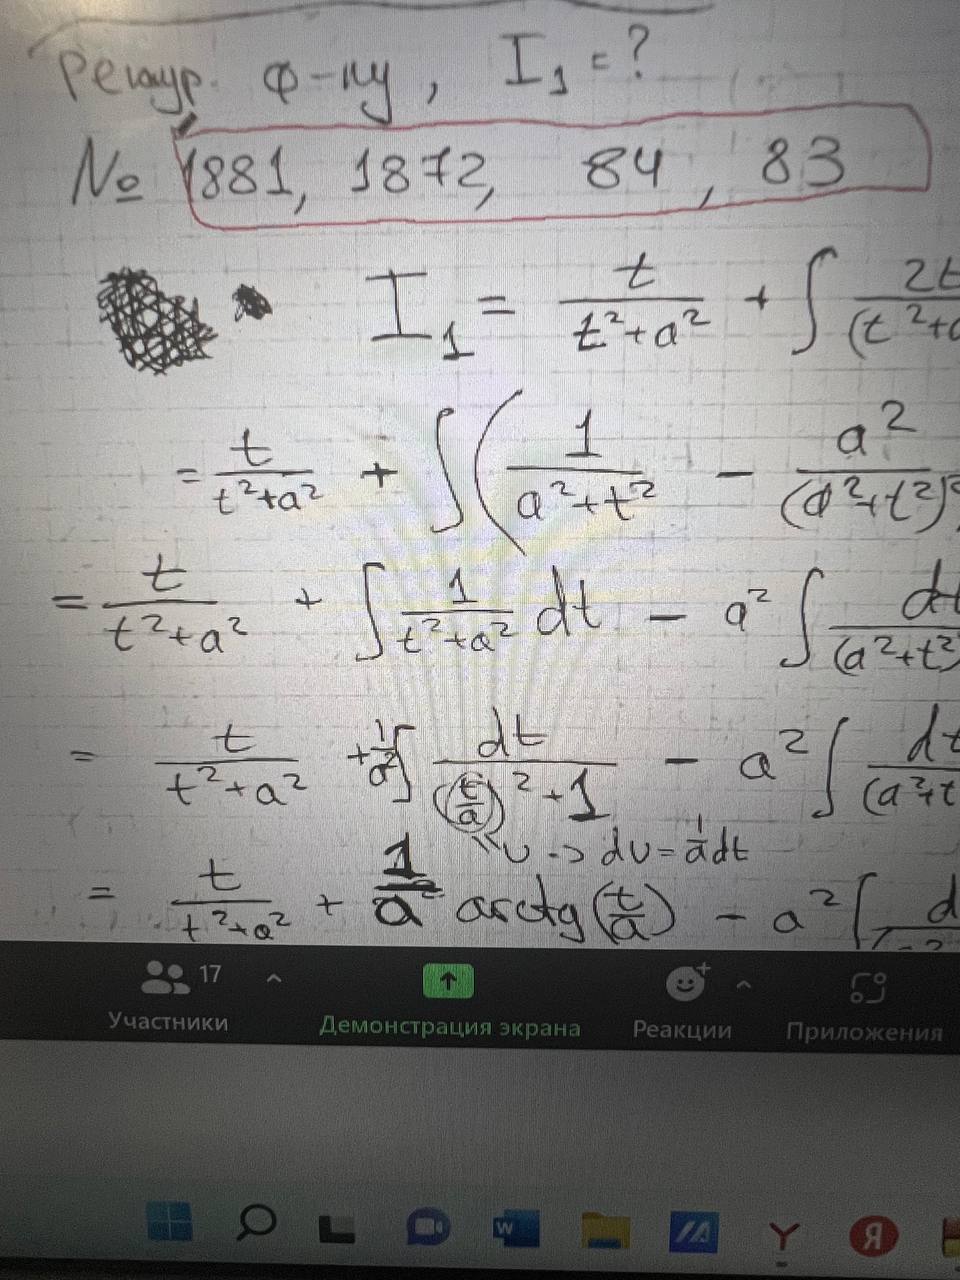 Рекур. ф-лу, I₁ = ?
№ 1881, 1872, 84, 83
I₁ = t/(t²+a²) + ∫ 2t/(t²+a
= t/(t²+a²) + ∫( 1/(a²+t²) − a²/(a²+t²)²
= t/(t²+a²) + ∫ 1/(t²+a²) dt − a² ∫ dt/(a²+t²)
= t/(t²+a²) + 1/a² ∫ dt/((t/a)²+1) − a² ∫ dt/(a²+t
υ -> dυ = 1/a dt
= t/(t²+a²) + 1/a arctg(t/a) − a² ∫ d
17
Участники
Демонстрация экрана
Реакции
Приложения
W
Y
Я